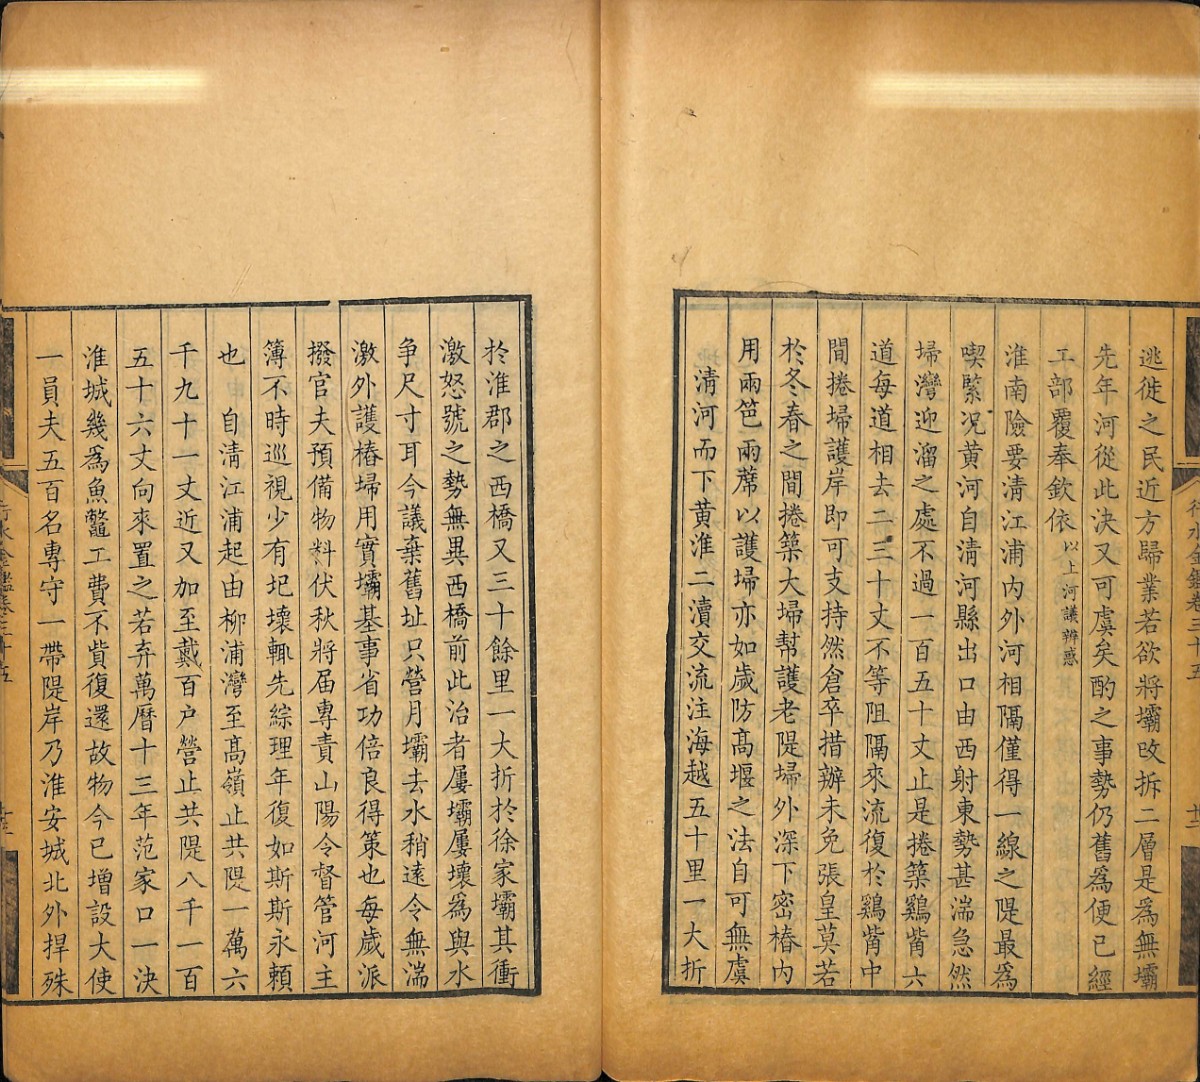 逃徙之民近方歸業若欲將壩改拆二層是為無壩
先年河從此決又可虞矣酌之事勢仍舊為便已經
工部覆奉欽依以上河議辨惑
淮南險要清江浦內外河相隔僅得一線之隄最為
喫緊况黄河自清河縣出口由西射東勢甚湍急然
埽灣迎溜之處不過一百五十丈止是捲築鷄觜六
道每道相去二三十丈不等阻隔來流復於鷄觜中
間捲埽護岸即可支持然倉卒措辦未免張皇莫若
於冬春之間捲築大埽幫護老隄埽外深下密樁內
用兩笆兩蓆以護埽亦如歲防高堰之法自可無虞
清河而下黄淮二瀆交流注海越五十里一大折
於淮郡之西橋又三十餘里一大折於徐家壩其衝
激怒號之勢無異西橋前此治者屢壩屢壞為與水
争尺寸耳今議棄舊址只營月壩去水稍逺令無湍
激外護樁埽用實壩基事省功倍良得策也每歲派
撥官夫預備物料伏秋將届專責山陽令督管河主
簿不時巡視少有圮壞輙先綜理年復如斯斯永頼
也　自清江浦起由柳浦灣至高嶺止共隄一萬六
千九十一丈近又加至戴百户營止共隄八千一百
五十六丈向來置之若弃萬曆十三年范家口一決
淮城幾為魚鼈工費不貲復還故物今已增設大使
一員夫五百名專守一帶隄岸乃淮安城北外捍殊
行水金鑑卷三十五